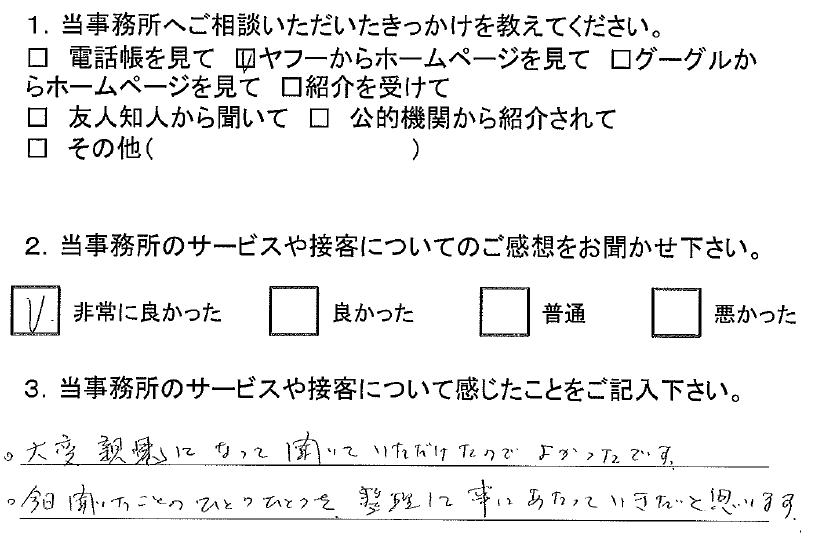 1. 当事務所へご相談いただいたきっかけを教えてください。
□ 電話帳を見て ☑ヤフーからホームページを見て □グーグルか
らホームページを見て □紹介を受けて
□ 友人知人から聞いて □ 公的機関から紹介されて
□ その他( )
2. 当事務所のサービスや接客についてのご感想をお聞かせ下さい。
☑ 非常に良かった □ 良かった □ 普通 □ 悪かった
3. 当事務所のサービスや接客について感じたことをご記入下さい。
。大変親身になって聞いていただけたのでよかったです。
。今日聞いたことのひとつひとつを、整理して事にあたっていきたいと思います。